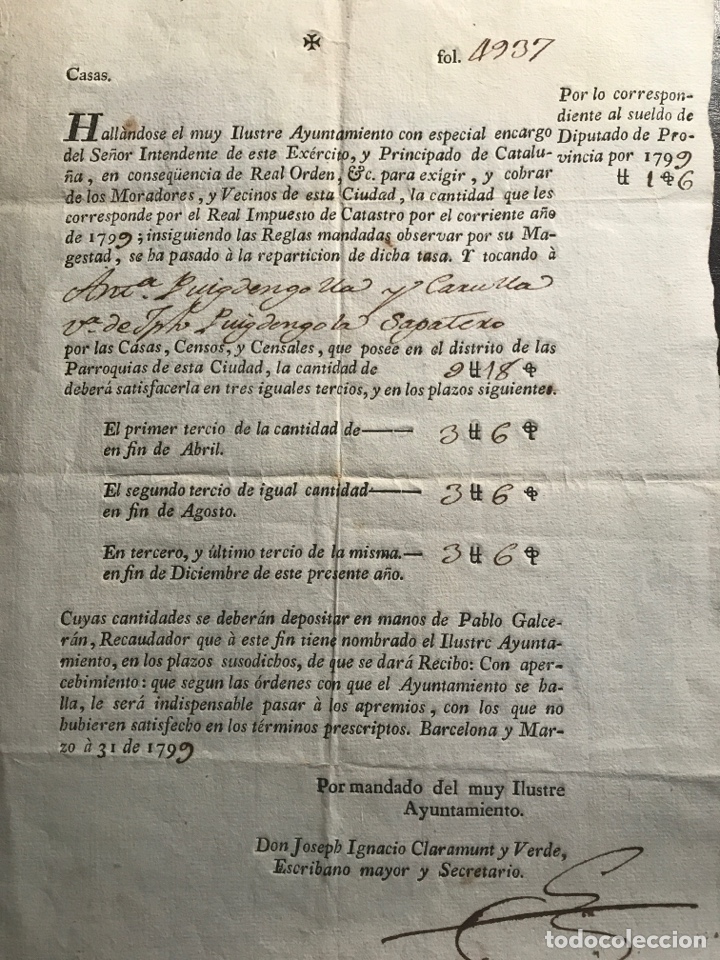 ✠
fol. 4937
Casas.
Por lo correspon-
diente al sueldo de
Diputado de Pro-
vincia por 1799
1 6
Hallàndose el muy Ilustre Ayuntamiento con especial encargo
del Señor Intendente de este Exército, y Principado de Catalu-
ña, en conseqüencia de Real Orden, &c. para exîgir, y cobrar
de los Moradores, y Vecinos de esta Ciudad, la cantidad que les
corresponde por el Real Impuesto de Catastro por el corriente año
de 1799; insiguiendo las Reglas mandadas observar por su Ma-
gestad, se ha pasado à la reparticion de dicha tasa. Y tocando à
Ant.ª Puigdengolla y Carulla
v.ª de Jph Puigdengola Sapatero
por las Casas, Censos, y Censales, que posee en el distrito de las
Parroquias de esta Ciudad, la cantidad de 9 18
deberá satisfacerla en tres iguales tercios, y en los plazos siguientes.
El primer tercio de la cantidad de—— 3 6
en fin de Abril.
El segundo tercio de igual cantidad—— 3 6
en fin de Agosto.
En tercero, y último tercio de la misma.— 3 6
en fin de Diciembre de este presente año.
Cuyas cantidades se deberán depositar en manos de Pablo Galce-
rán, Recaudador que à este fin tiene nombrado el Ilustre Ayunta-
miento, en los plazos susodichos, de que se dará Recibo: Con aper-
cebimiento: que segun las órdenes con que el Ayuntamiento se ha-
lla, le será indispensable pasar à los apremios, con los que no
hubieren satisfecho en los términos prescriptos. Barcelona y Mar-
zo à 31 de 1799
Por mandado del muy Ilustre
Ayuntamiento.
Don Joseph Ignacio Claramunt y Verde,
Escribano mayor y Secretario.
todocoleccion